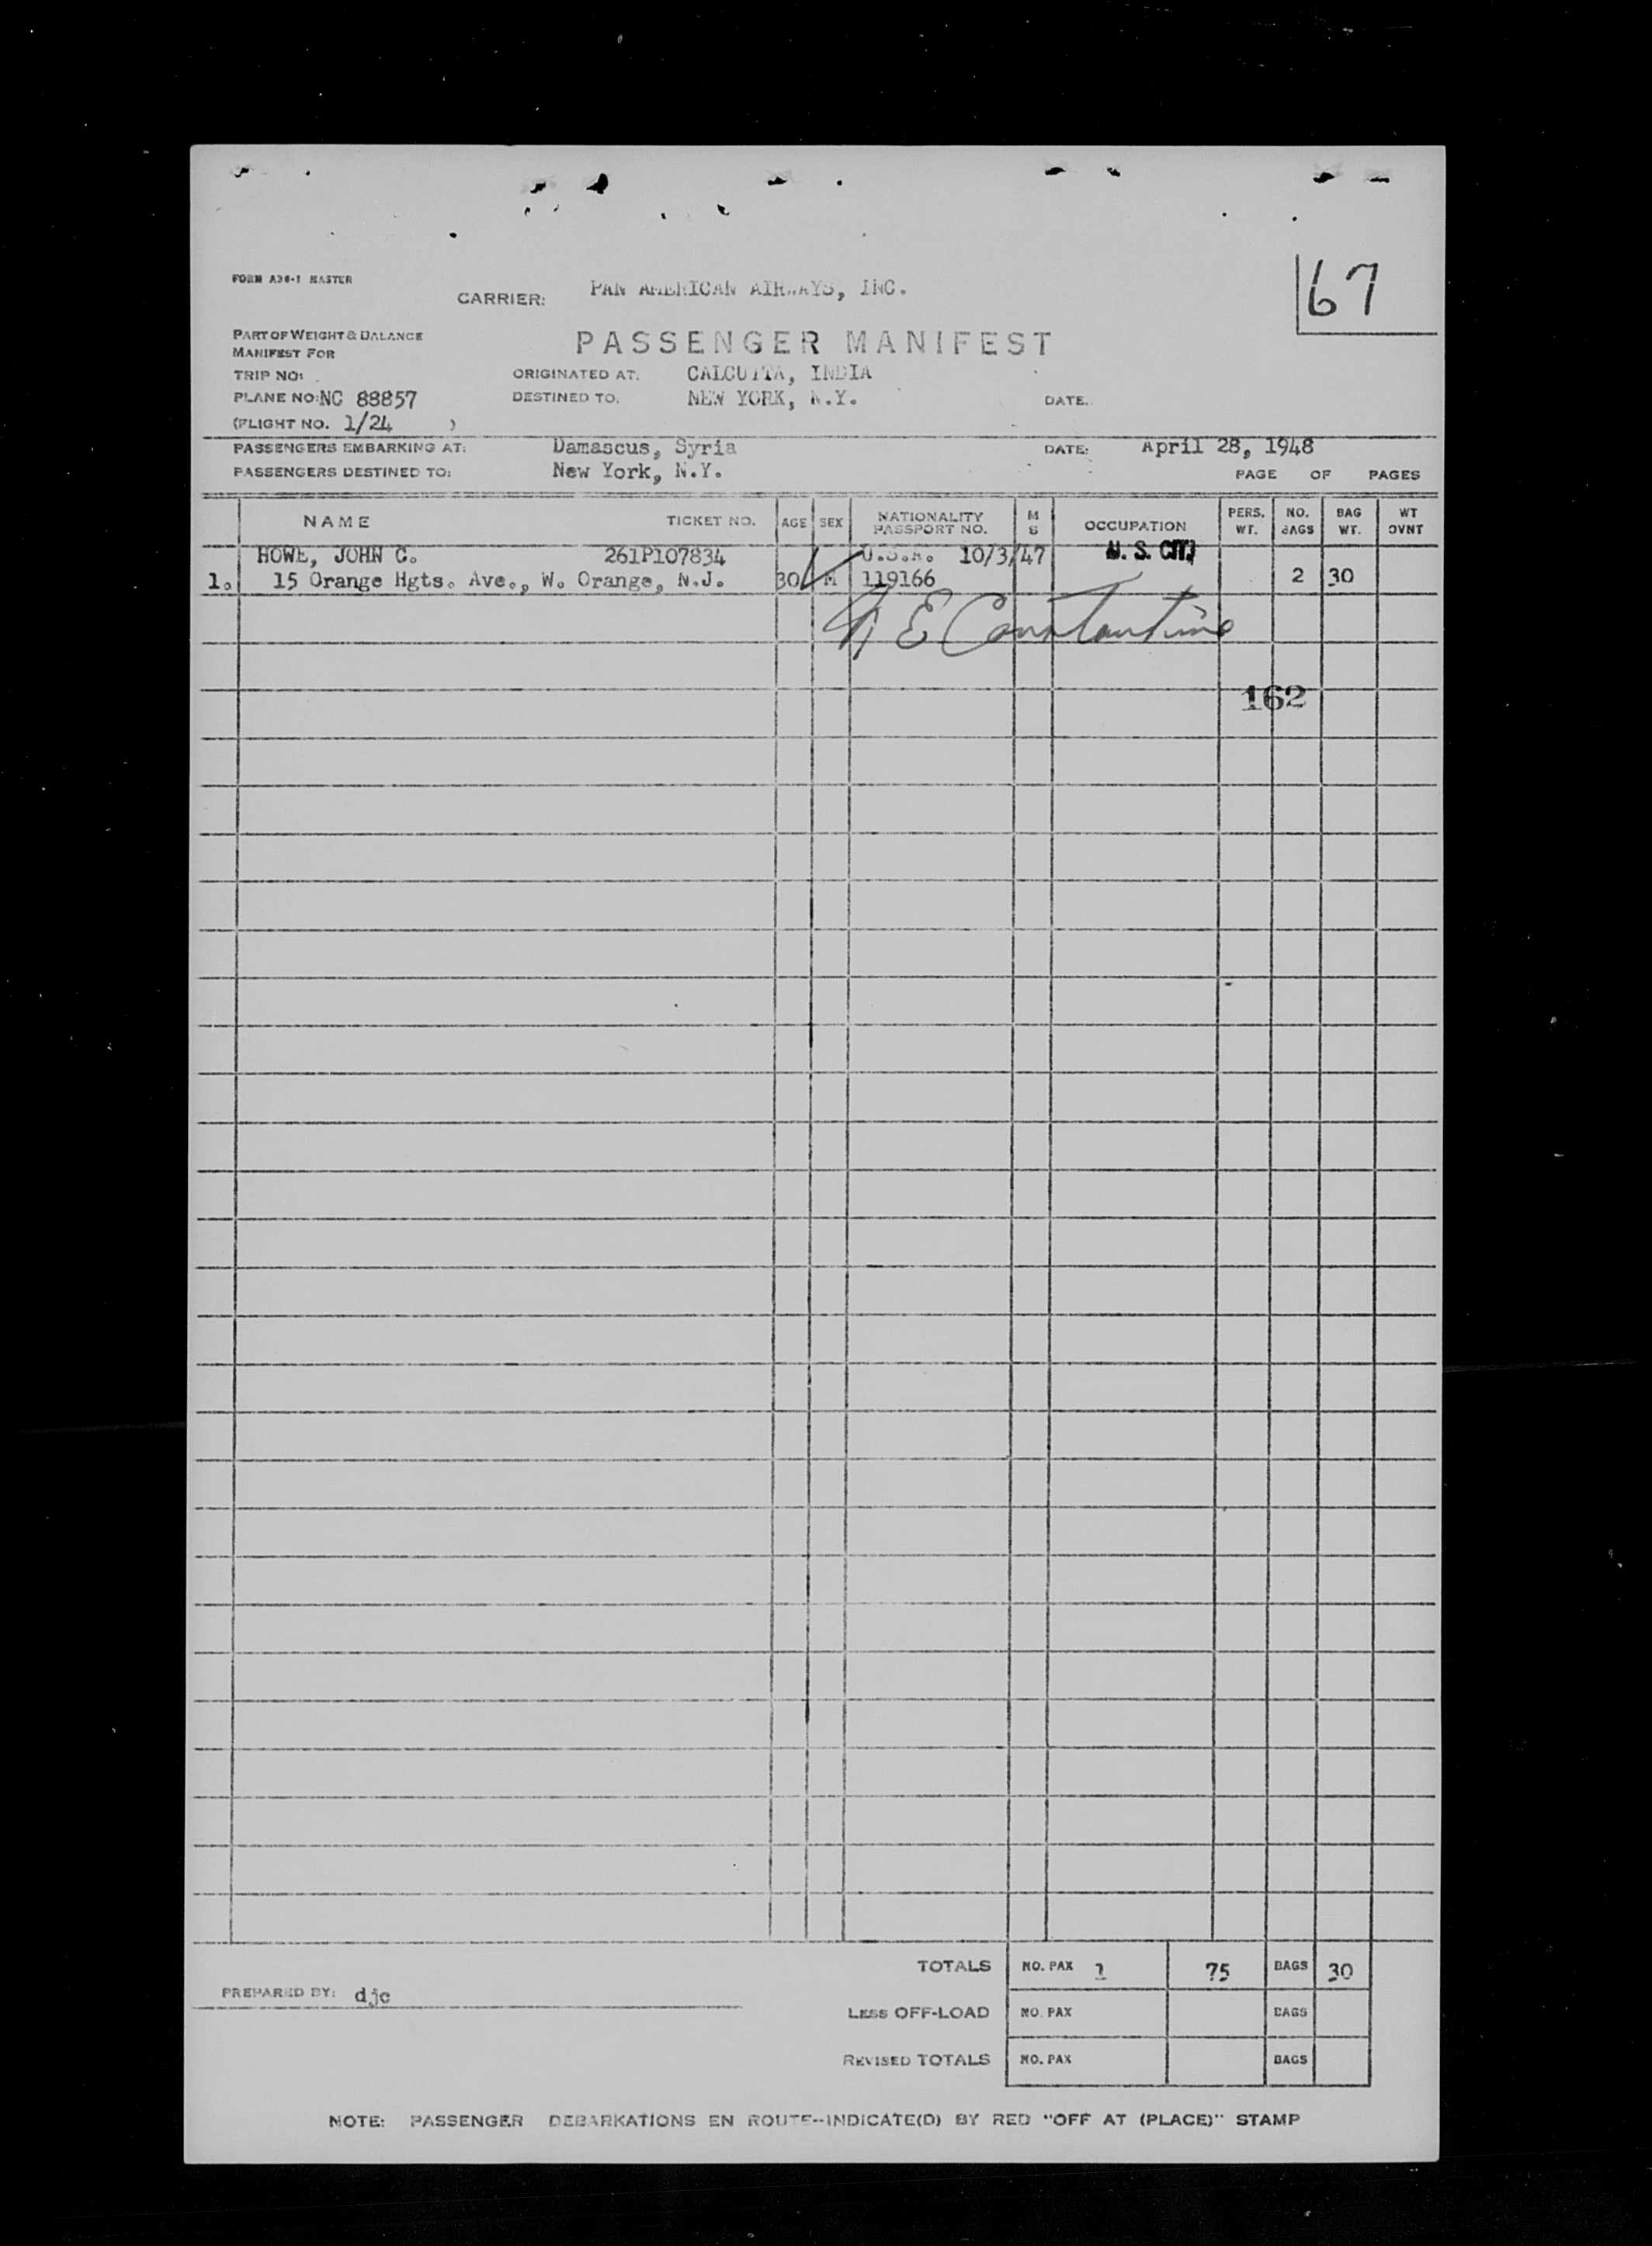 FORM A36-1 MASTER
CARRIER: PAN AMERICAN AIRWAYS, INC.
67
PART OF WEIGHT & BALANCE
MANIFEST FOR
PASSENGER MANIFEST
TRIP NO:
ORIGINATED AT. CALCUTTA, INDIA
PLANE NO: NC 88857
DESTINED TO. NEW YORK, N.Y.
DATE.
(FLIGHT NO. 1/24 )
PASSENGERS EMBARKING AT: Damascus, Syria
DATE: April 28, 1948
PASSENGERS DESTINED TO: New York, N.Y.
PAGE OF PAGES
NAME TICKET NO. AGE SEX NATIONALITY PASSPORT NO. M S OCCUPATION PERS. WT. NO. BAGS BAG WT. WT OVNT
HOWE, JOHN C. 261P107834 U.S.A. 10/3/47 U. S. CIT.
1. 15 Orange Hgts. Ave., W. Orange, N.J. 30 M 119166 2 30
E Constantine
162
TOTALS NO. PAX 1 75 BAGS 30
PREPARED BY: djc
LESS OFF-LOAD NO. PAX BAGS
REVISED TOTALS NO. PAX BAGS
NOTE: PASSENGER DEBARKATIONS EN ROUTE--INDICATE(D) BY RED "OFF AT (PLACE)" STAMP